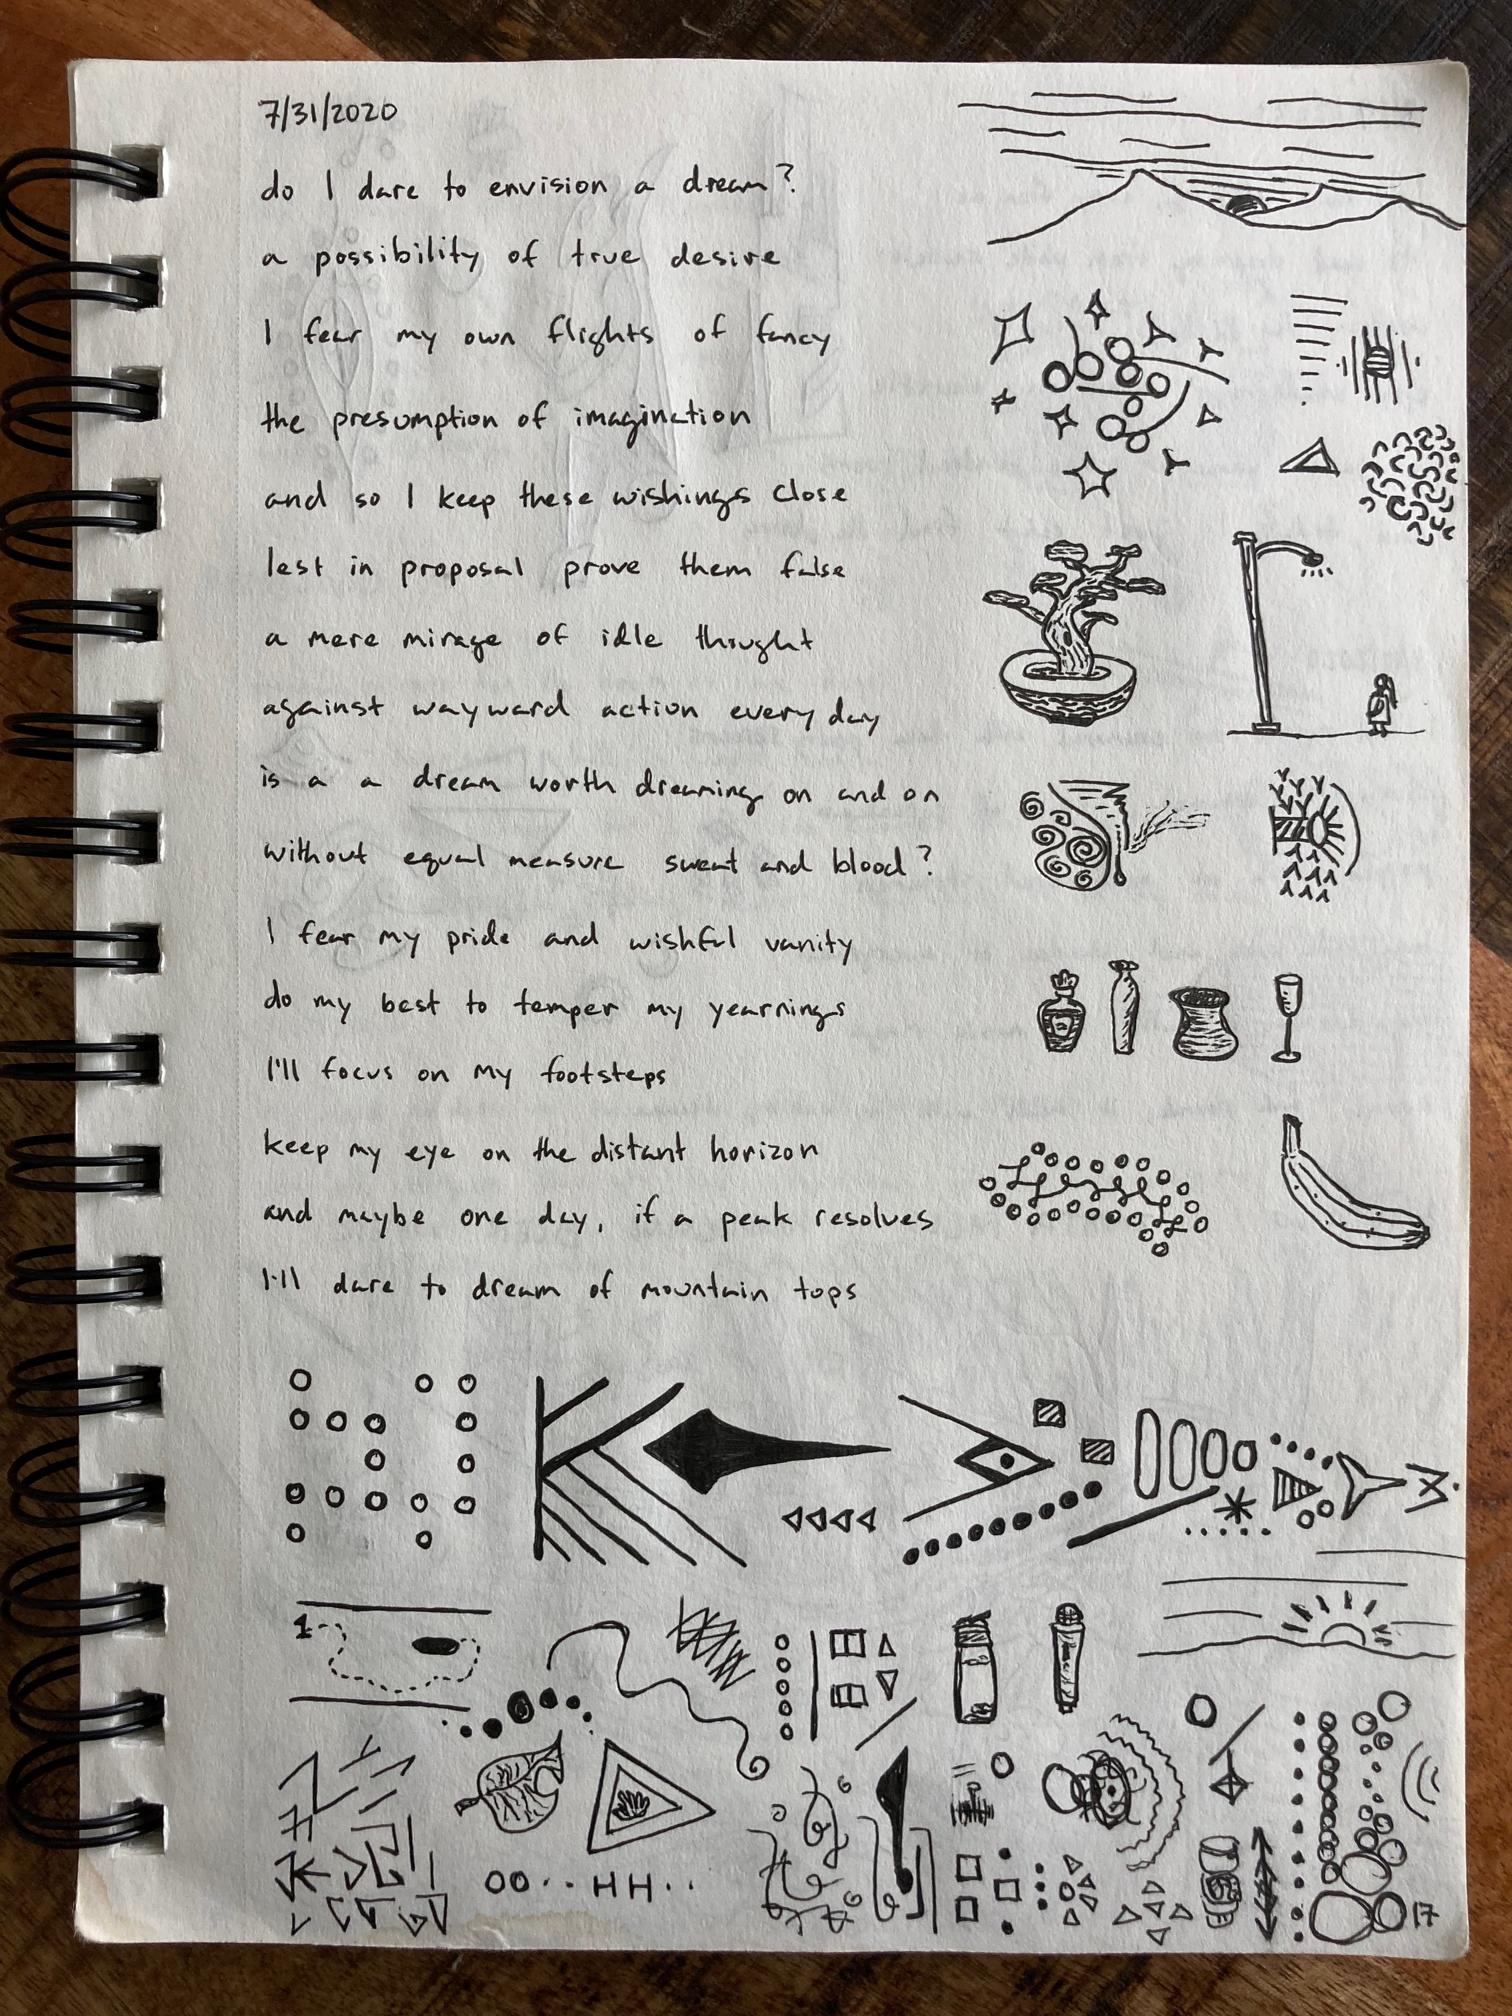 7/31/2020
do I dare to envision a dream?
a possibility of true desire
I fear my own flights of fancy
the presumption of imagination
and so I keep these wishings close
lest in proposal prove them false
a mere mirage of idle thought
against wayward action every day
is a a dream worth dreaming on and on
without equal measure sweat and blood?
I fear my pride and wishful vanity
do my best to temper my yearnings
I'll focus on my footsteps
keep my eye on the distant horizon
and maybe one day, if a peak resolves
I'll dare to dream of mountain tops
17